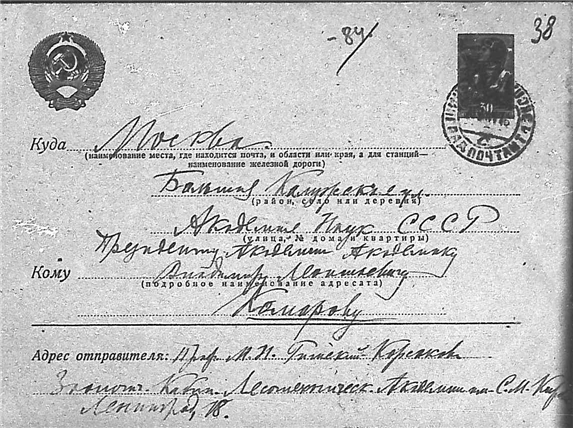 -84/
38
50
Куда Москва.
(наименование места, где находится почта, и области или края, а для станций—
наименование железной дороги)
Большая Калужская ул.
(район, село или деревня)
Академия Наук СССР
(улица, № дома и квартиры)
Президенту Академии Академику
Кому Владимиру Леонтьевичу
(подробное наименование адресата)
Комарову
Адрес отправителя: Проф. М. Н. Римский-Корсаков
Зоолог. Кабин. Лесотехническ. Академии им. С. М.
Ленинград, 18.